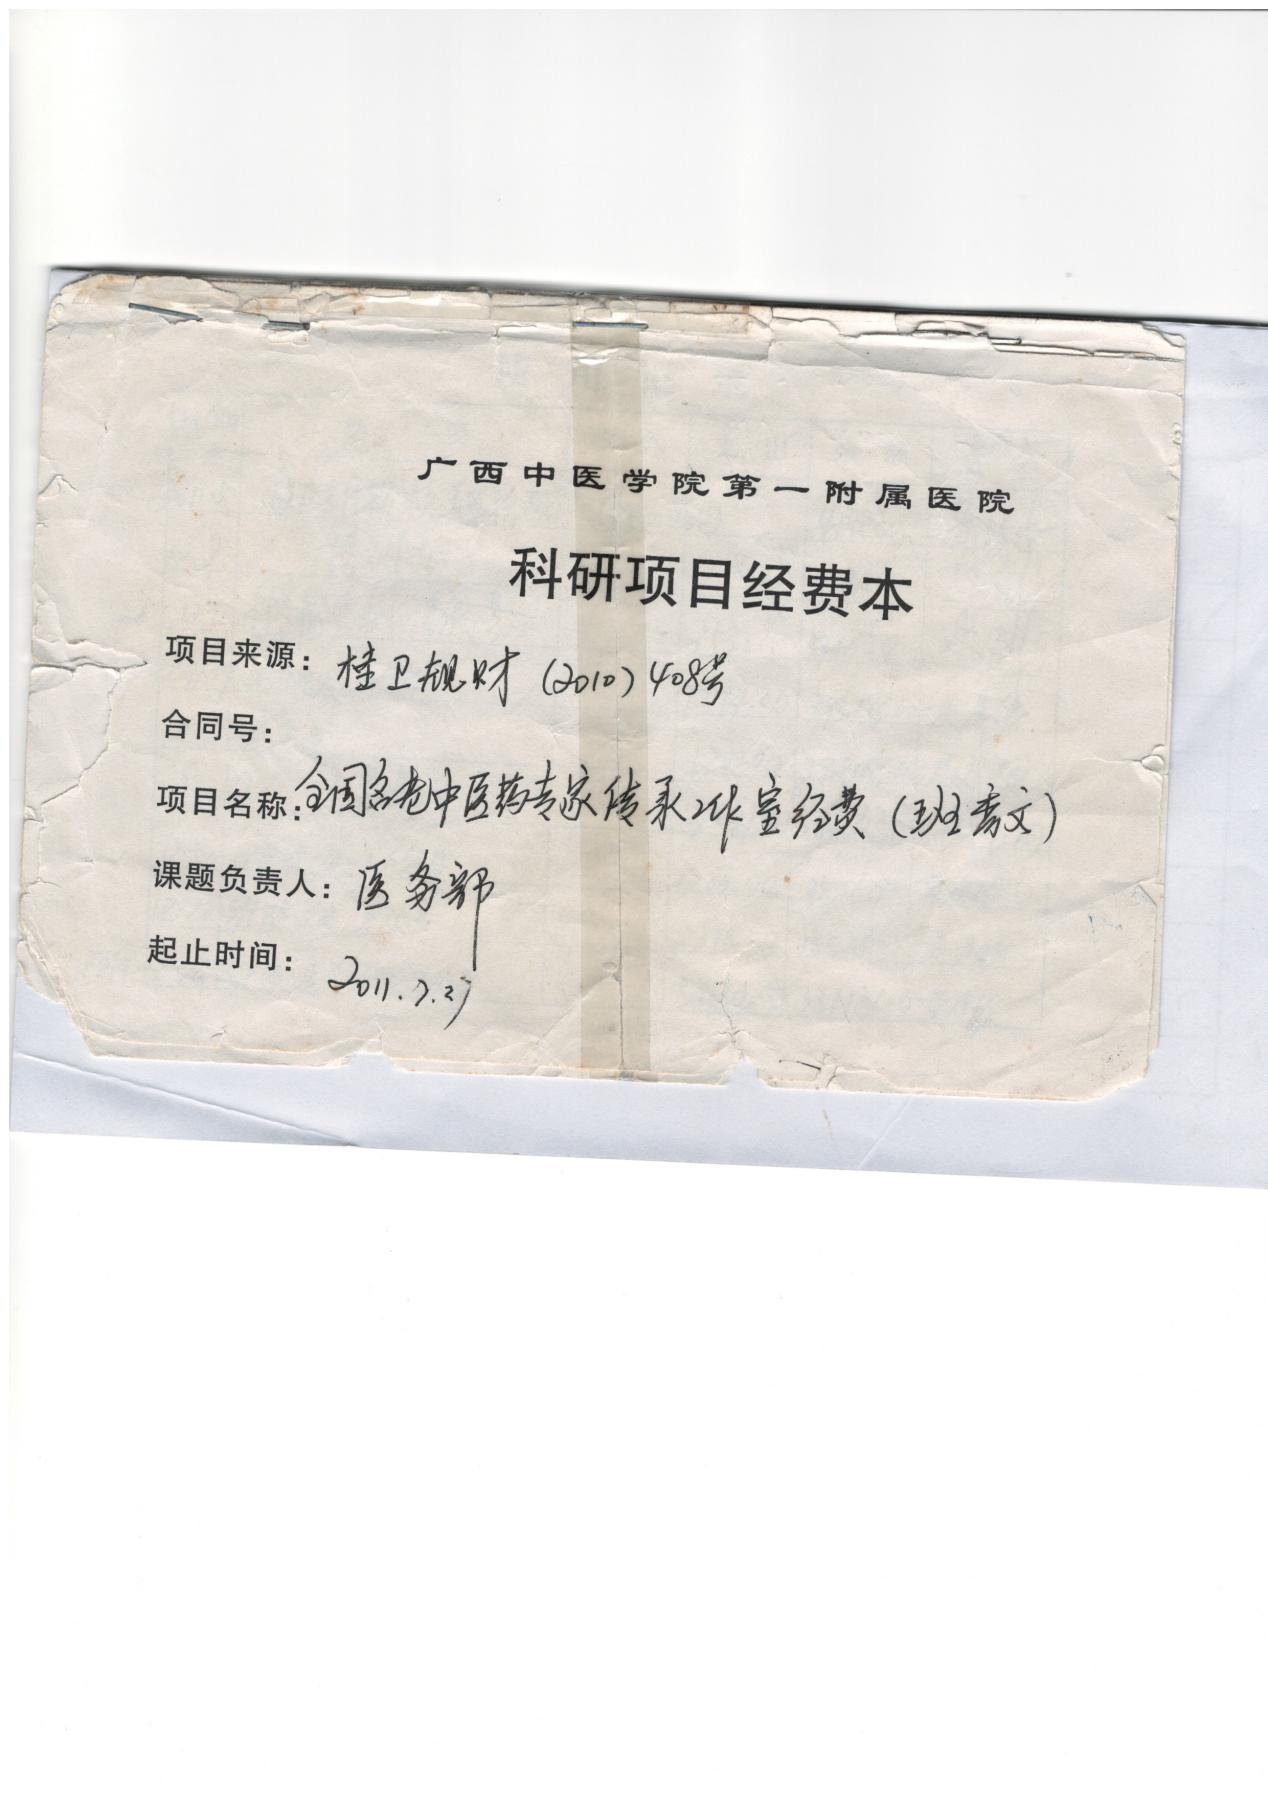 广西中医学院第一附属医院
科研项目经费本
项目来源：桂卫规财（2010）408号
合同号：
项目名称：全国名老中医药专家传承工作室经费（班秀文）
课题负责人：医务部
起止时间：2011.7.27